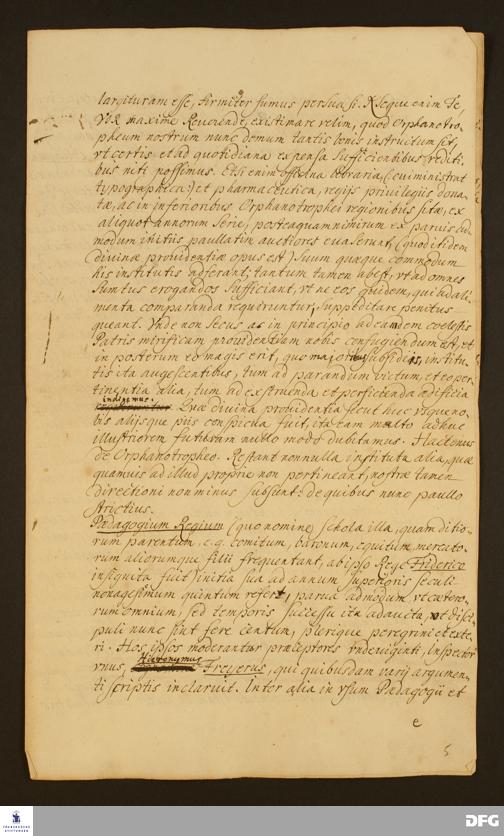 largituram esse, firmiter sumus persuasi. Neque enim Te,
Vir maxime Reverende, existimare velim, quod Orphanotro-
pheum nostrum nunc demum tantis bonis instructum sit,
vt certis et ad quotidiana expensa sufficientibus rediti-
bus niti possimus. Etsi enim officina libraria (cui ministrat
typographica) et pharmaceutica, regiis privilegiis dona-
tæ, ac in inferioribus Orphanotrophei regionibus sitæ, ex
aliquot annorum serie, posteaquam nimirum ex parvis ad-
modum initiis paullatim auctiores evaserunt, (quod itidem
divinæ providentiæ opus est) suum quæque commodum
his institutis adferant; tantum tamen abest, vt ad omnes
sumtus erogandos sufficiant, vt ne eos quidem, qui ad ali-
menta comparanda requiruntur, suppeditare penitus
queant. Vnde non secus ac in principio ad eandem coelestis
Patris mirificam providentiam nobis confugiendum est, et
in posterum eo magis erit, quo maioribus subsidiis, institu-
tis ita augescentibus, tum ad parandum victum, et eo per-
tinentia alia, tum ad exstruenda et perficienda ædificia
indigemus.
Quæ divina providentia sicut huc vsque no-
bis aliisque piis conspicua fuit, ita eam multo adhuc
illustriorem futuram nullo modo dubitamus. Hactenus
de Orphanotropheo. Restant nonnulla instituta alia, quæ
quamvis ad illud proprie non pertineant, nostræ tamen
directioni non minus subsunt: de quibus nunc paullo
strictius.
Pædagogium Regium (quo nomine schola illa, quam ditio-
rum parentum, e.g. comitum, baronum, equitum, mercato-
rum aliorumque filii frequentant, ab ipso Rege Friderico
insignita fuit) initia sua ad annum superioris seculi
nonagesimum quintum refert, parva admodum vt cætero-
rum omnium, sed temporis successu ita adaucta, vt disci-
puli nunc sint fere centum, plerique peregrini et exte-
ri. Hos ipsos moderantur præceptores vndeviginti, Inspector
Hieronymus
vnus, Freyerus, qui quibusdam varii argumen-
ti scriptis inclaruit. Inter alia in vsum Pædagogii et
e
5
FRANCKESCHE STIFTUNGEN
DFG